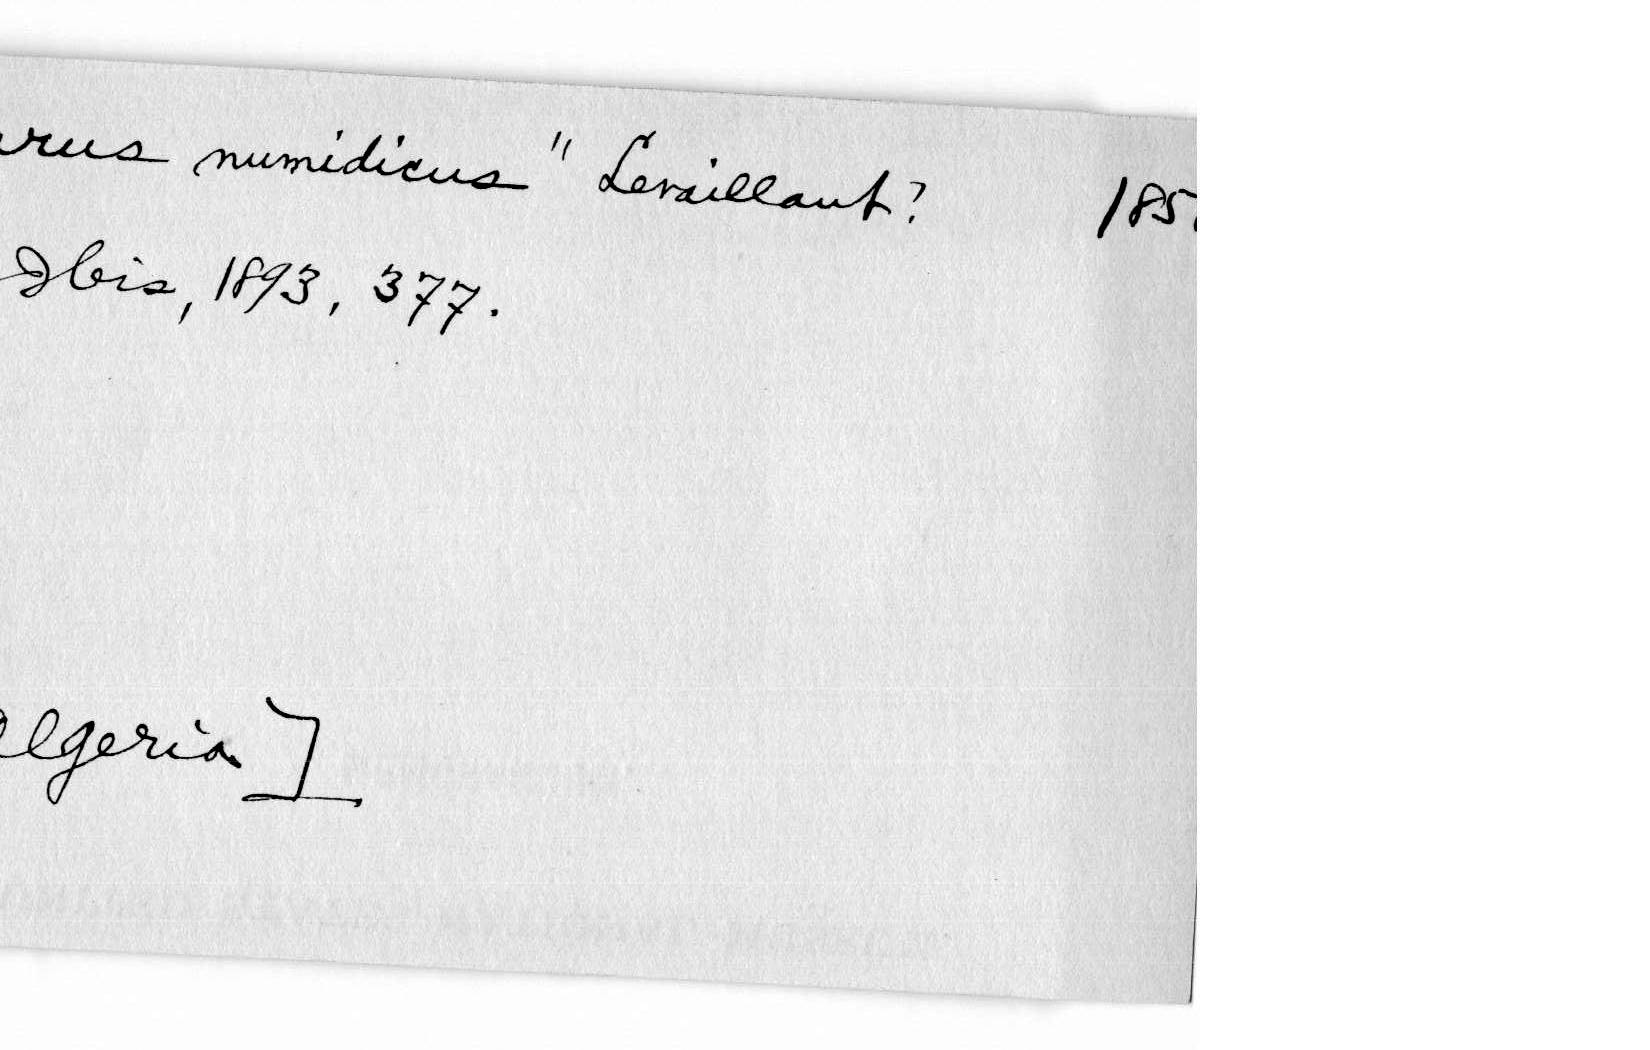 numidicus" Levaillant?
Ibis, 1893, 377.
Algeria]